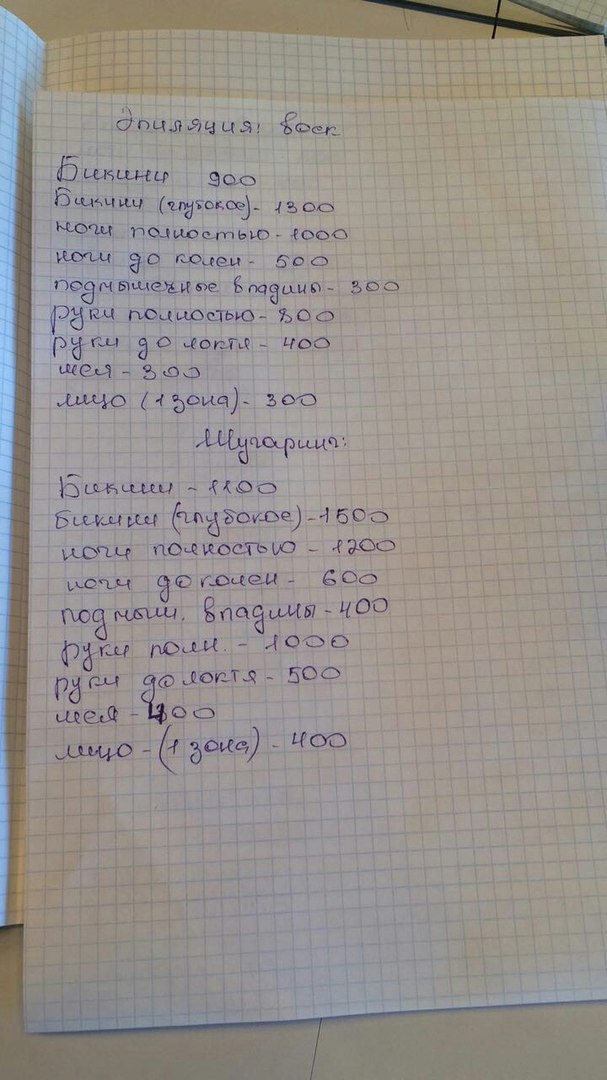 Эпиляция: воск
Бикини 900
Бикини (глубокое) - 1300
ноги полностью - 1000
ноги до колен - 500
подмышечные впадины - 300
руки полностью - 800
руки до локтя - 400
шея - 300
лицо (1 зона) - 300
Шугаринг:
Бикини - 1100
Бикини (глубокое) - 1500
ноги полностью - 1200
ноги до колен - 600
подмыш. впадины - 400
руки полн. - 1000
руки до локтя - 500
шея - 400
лицо - (1 зона) - 400